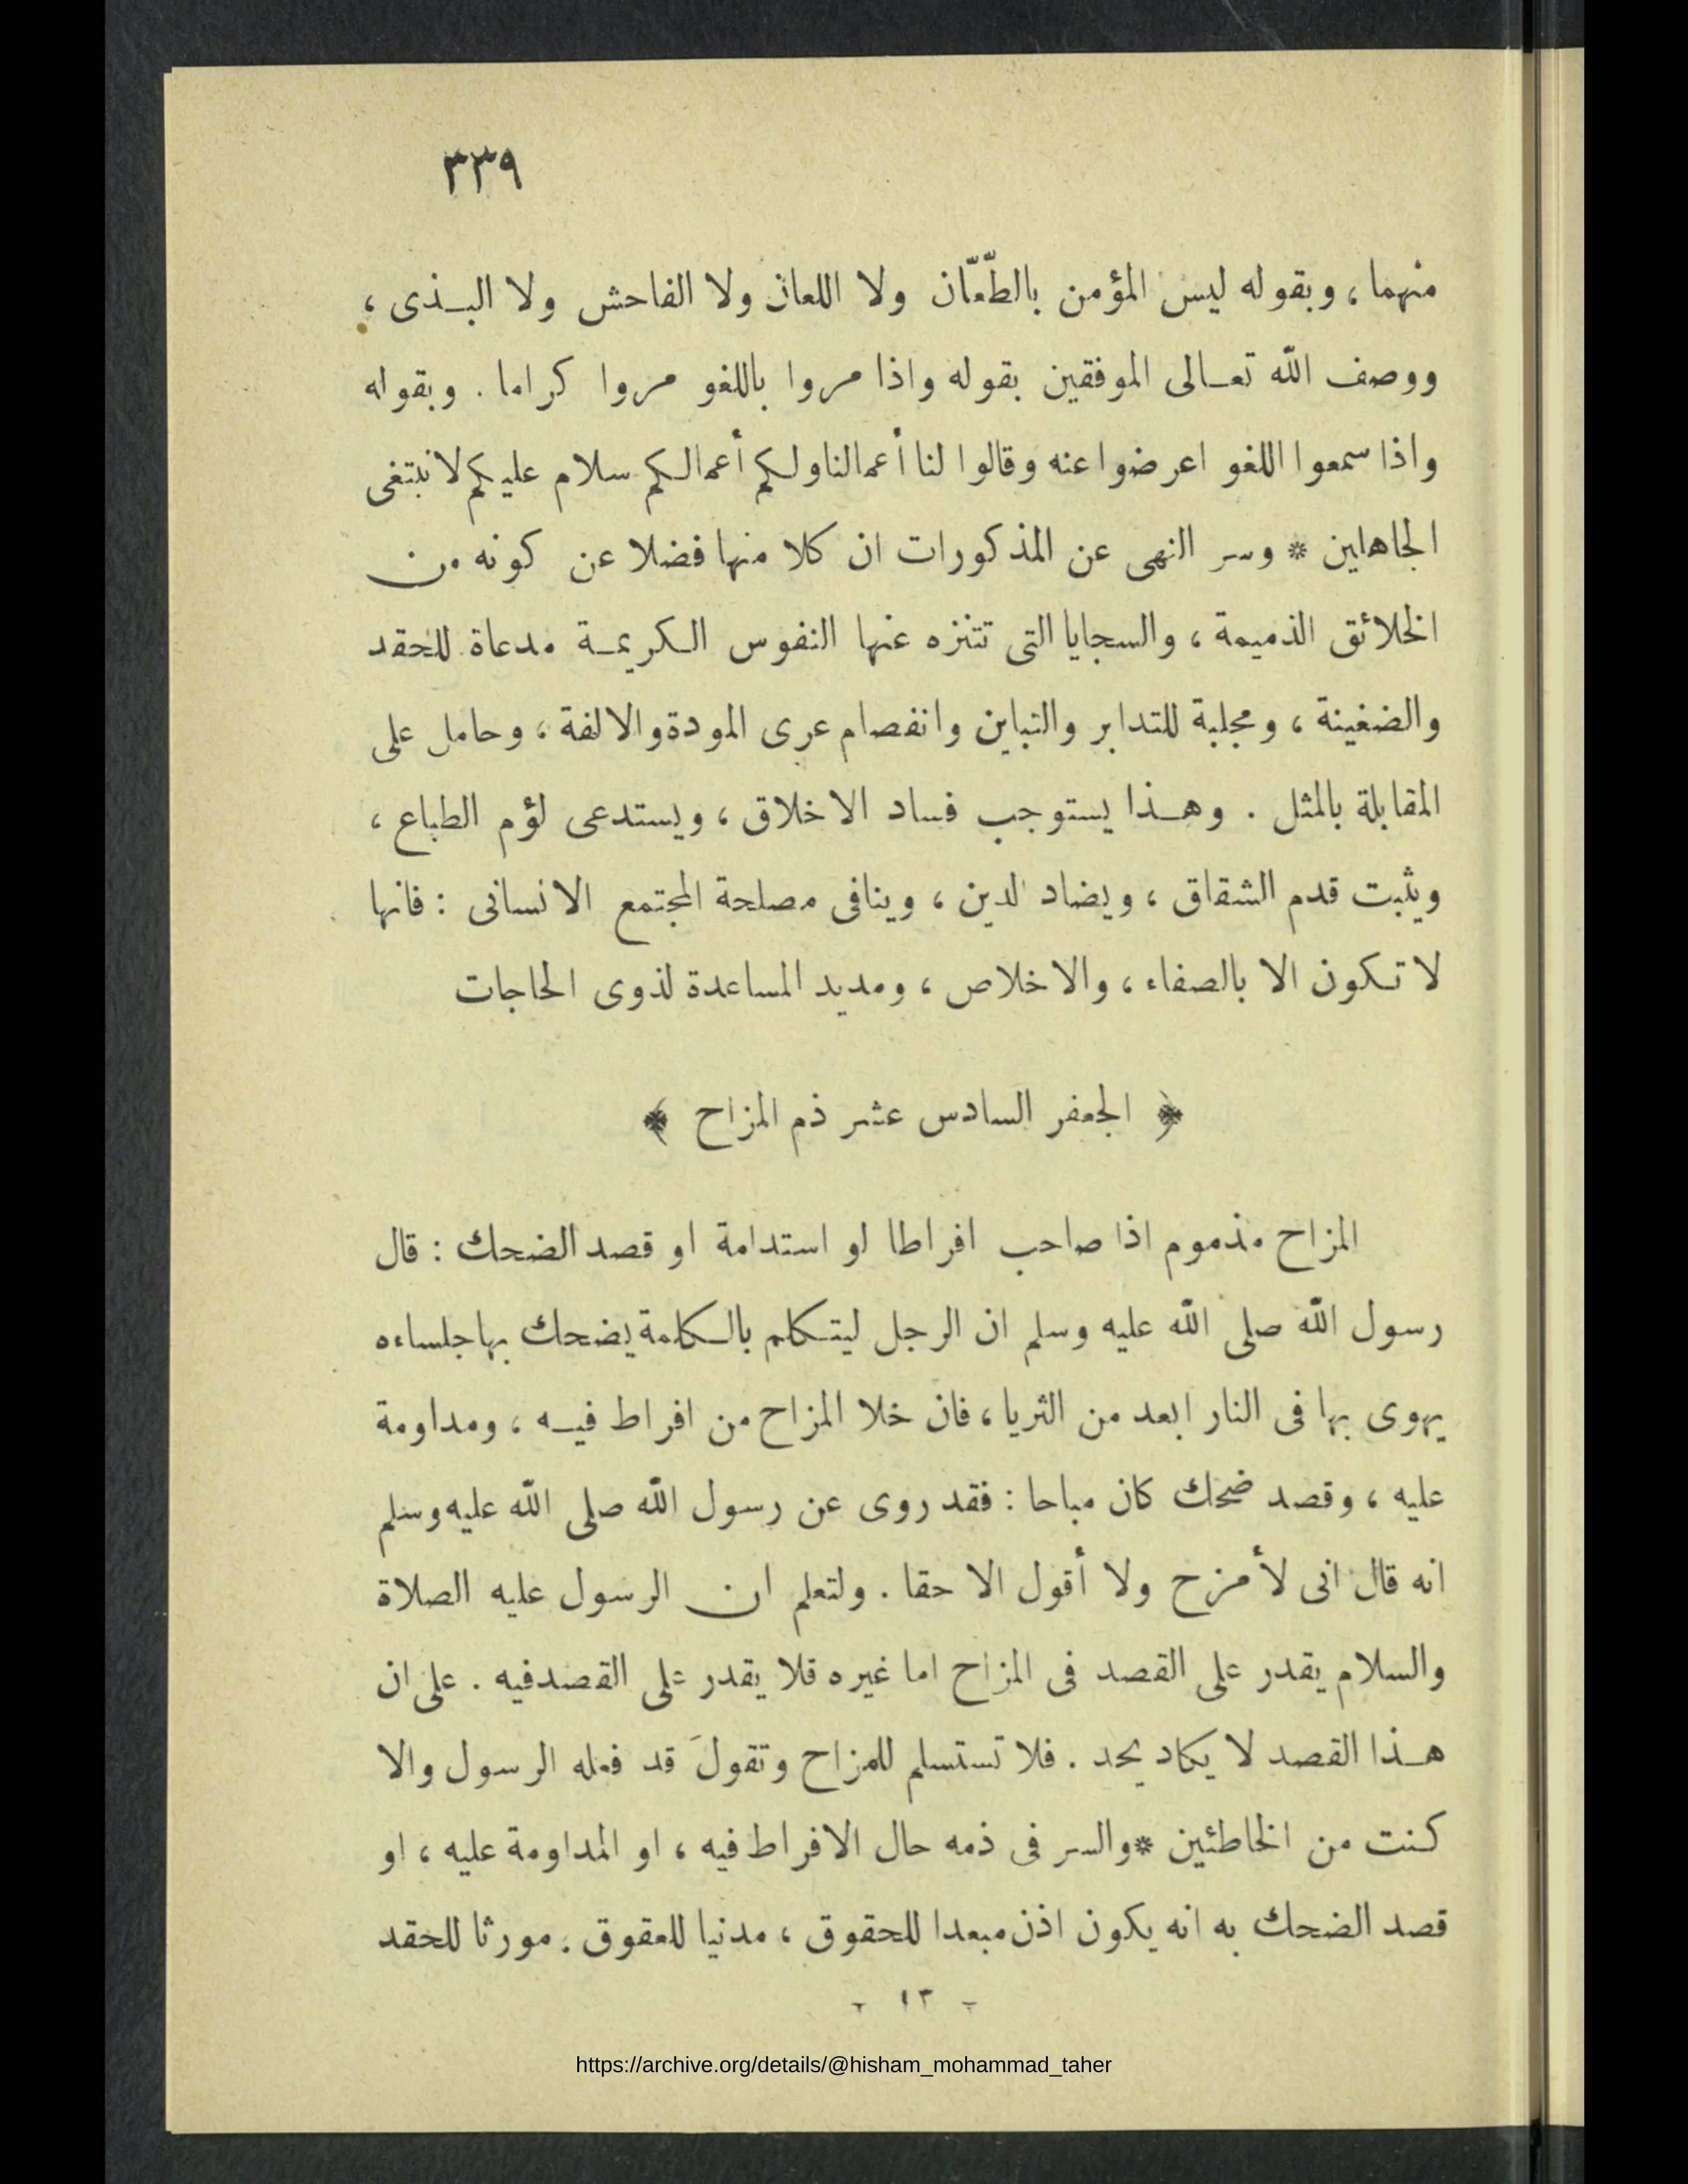 ٣٣٩
منهما ، وبقوله ليس المؤمن بالطّعّان ولا اللعان ولا الفاحش ولا البـذى ،
ووصف الله تعـالى الموفقين بقوله واذا مروا باللغو مروا كراما . وبقوله
واذا سمعوا اللغو اعرضوا عنه وقالوا لنا أعمالنا ولكم أعمالكم سلام عليكم لا نبتغى
الجاهلين * وسر النهى عن المذكورات ان كلا منها فضلا عن كونه من
الخلائق الذميمة ، والسجايا التى تتنزه عنها النفوس الكريمـة مدعاة للحقد
والضغينة ، ومجلبة للتدابر والتباين وانفصام عرى المودة والالفة ، وحامل على
المقابلة بالمثل . وهـذا يستوجب فساد الاخلاق ، ويستدعى لؤم الطباع ،
ويثبت قدم الشقاق ، ويضاد لدين ، وينافى مصلحة المجتمع الانسانى : فانها
لا تكون الا بالصفاء ، والاخلاص ، ومديد المساعدة لذوى الحاجات
﴿ الجعفر السادس عشر ذم المزاح ﴾
المزاح مذموم اذا صاحب افراطا او استدامة او قصد الضحك : قال
رسول الله صلى الله عليه وسلم ان الرجل ليتكلم بالكلمة يضحك بها جلساءه
يهوى بها فى النار ابعد من الثريا ، فان خلا المزاح من افراط فيـه ، ومداومة
عليه ، وقصد ضحك كان مباحا : فقد روى عن رسول الله صلى الله عليه وسلم
انه قال انى لأمزح ولا أقول الا حقا . ولتعلم ان الرسول عليه الصلاة
والسلام يقدر على القصد فى المزاح اما غيره فلا يقدر على القصد فيه . على ان
هـذا القصد لا يكاد يحد . فلا تستسلم للمزاح وتقولَ قد فعله الرسول والا
كنت من الخاطئين * والسر فى ذمه حال الافراط فيه ، او المداومة عليه ، او
قصد الضحك به انه يكون اذن مبعدا للحقوق ، مدنيا للعقوق . مورثا للحقد
- ١٣ -
https://archive.org/details/@hisham_mohammad_taher